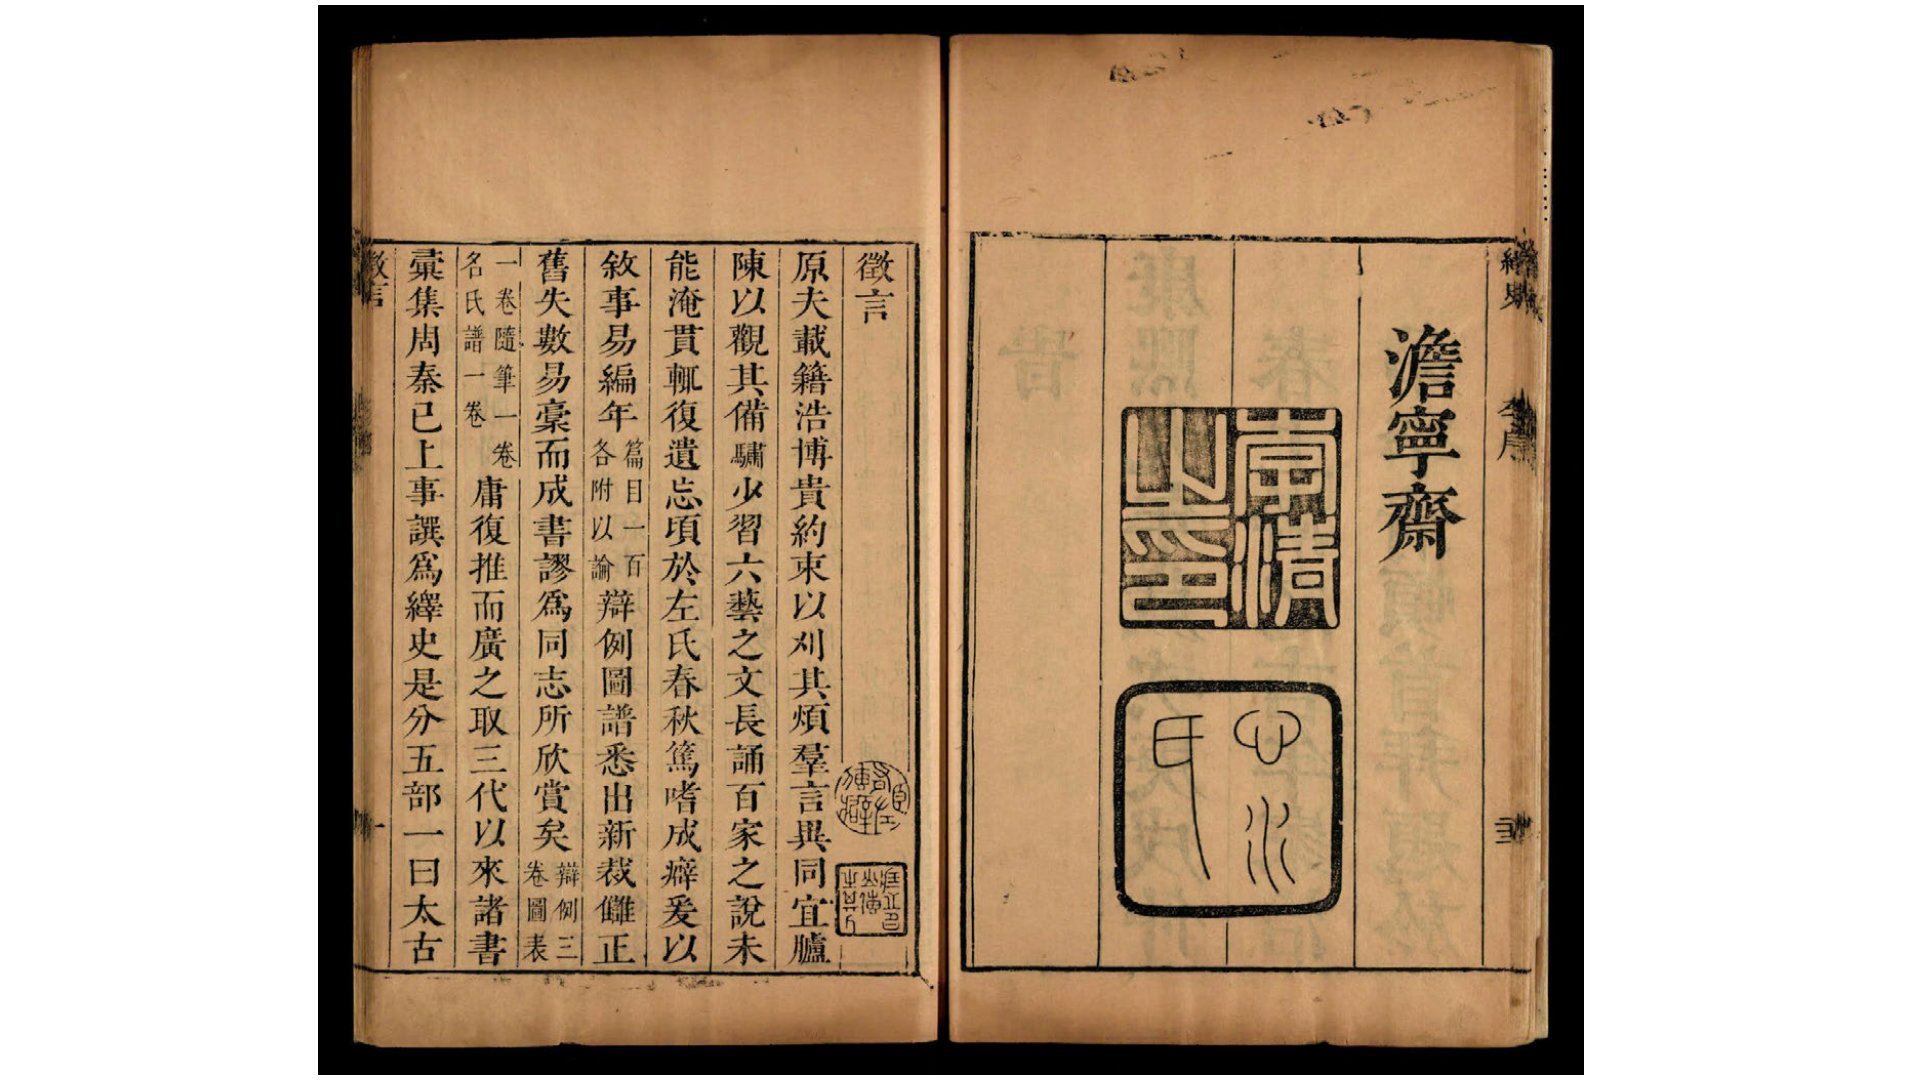 繹史
李序
澹寧齋
李清
之印
心水
氏
徵言
原夫載籍浩博貴約束以刈其煩羣言異同宜臚
陳以觀其備驌少習六藝之文長誦百家之說未
能淹貫輒復遺忘頃於左氏春秋篤嗜成癖爰以
敘事易編年篇目一百各附以論辯例圖譜悉出新裁讎正
舊失數易稾而成書謬爲同志所欣賞矣辯例三卷圖表
一卷隨筆一卷名氏譜一卷庸復推而廣之取三代以來諸書
彚集周秦已上事譔爲繹史是分五部一曰太古
徵言
一